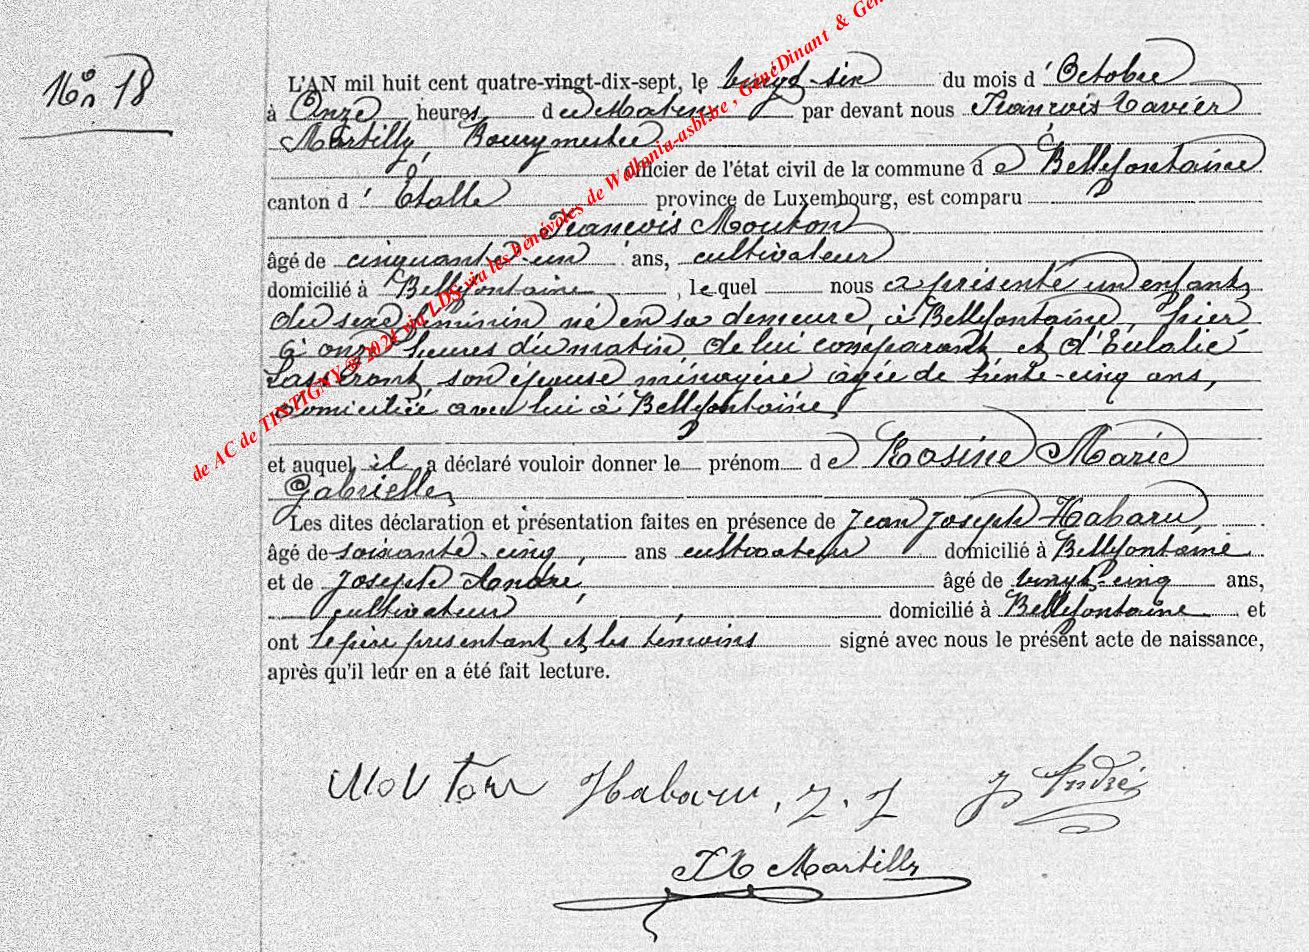 No 18
L'AN mil huit cent quatre-vingt-dix-sept, le vingt-six du mois d' Octobre
à Onze heures du Matin par devant nous François Xavier
Martilly, Bourgmestre
officier de l'état civil de la commune de Bellefontaine
canton d' Étalle province de Luxembourg, est comparu
François Mouton
âgé de cinquante-un ans, cultivateur
domicilié à Bellefontaine, lequel nous a présenté un enfant
du sexe féminin né en sa demeure, à Bellefontaine, hier
à onze heures du matin de lui comparant et d'Eulalie
son épouse ménagère âgée de trente-cinq ans,
domiciliée avec lui à Bellefontaine
et auquel il a déclaré vouloir donner le prénom de Rosine Marie
Gabrielle
Les dites déclaration et présentation faites en présence de Jean Joseph Habaru,
âgé de soixante-cinq, ans cultivateur domicilié à Bellefontaine
et de Joseph André, âgé de vingt-cinq ans,
cultivateur, domicilié à Bellefontaine et
ont le père présentant et les témoins signé avec nous le présent acte de naissance,
après qu'il leur en a été fait lecture.
Mouton Habaru. J. J J André
FX Martilly
de AC de TINTIGNY @ 2024 via LDS via les bénévoles de Wallonia-asbl.be, GénéDinant & Gén